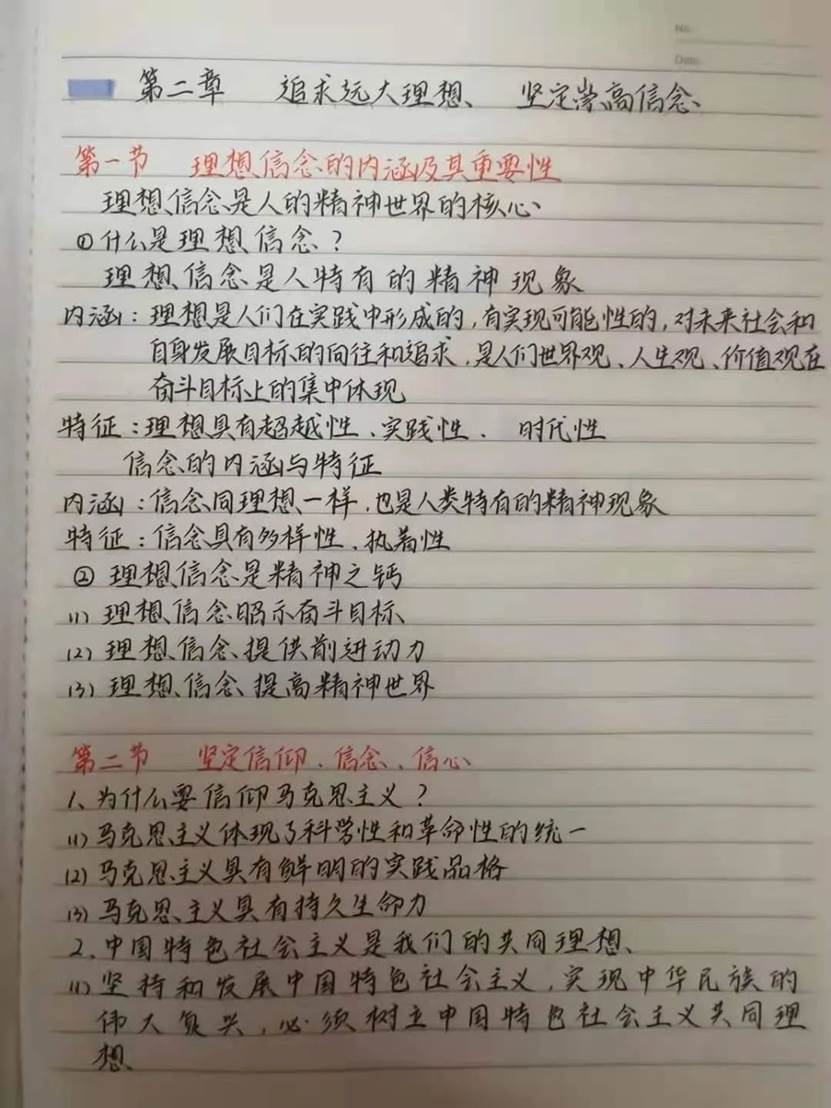 No.
Date
第二章 追求远大理想、坚定崇高信念
第一节 理想信念的内涵及其重要性
理想信念是人的精神世界的核心
①什么是理想信念？
理想信念是人特有的精神现象
内涵：理想是人们在实践中形成的,有实现可能性的,对未来社会和
自身发展目标的向往和追求,是人们世界观、人生观、价值观在
奋斗目标上的集中体现
特征：理想具有超越性、实践性、时代性
信念的内涵与特征
内涵：信念同理想一样,也是人类特有的精神现象
特征：信念具有多样性、执着性
② 理想信念是精神之钙
(1) 理想信念昭示奋斗目标
(2) 理想信念提供前进动力
(3) 理想信念提高精神世界
第二节 坚定信仰、信念、信心
1、为什么要信仰马克思主义？
(1) 马克思主义体现了科学性和革命性的统一
(2) 马克思主义具有鲜明的实践品格
(3) 马克思主义具有持久生命力
2、中国特色社会主义是我们的共同理想
(1) 坚持和发展中国特色社会主义,实现中华民族的
伟大复兴,必须树立中国特色社会主义共同理
想